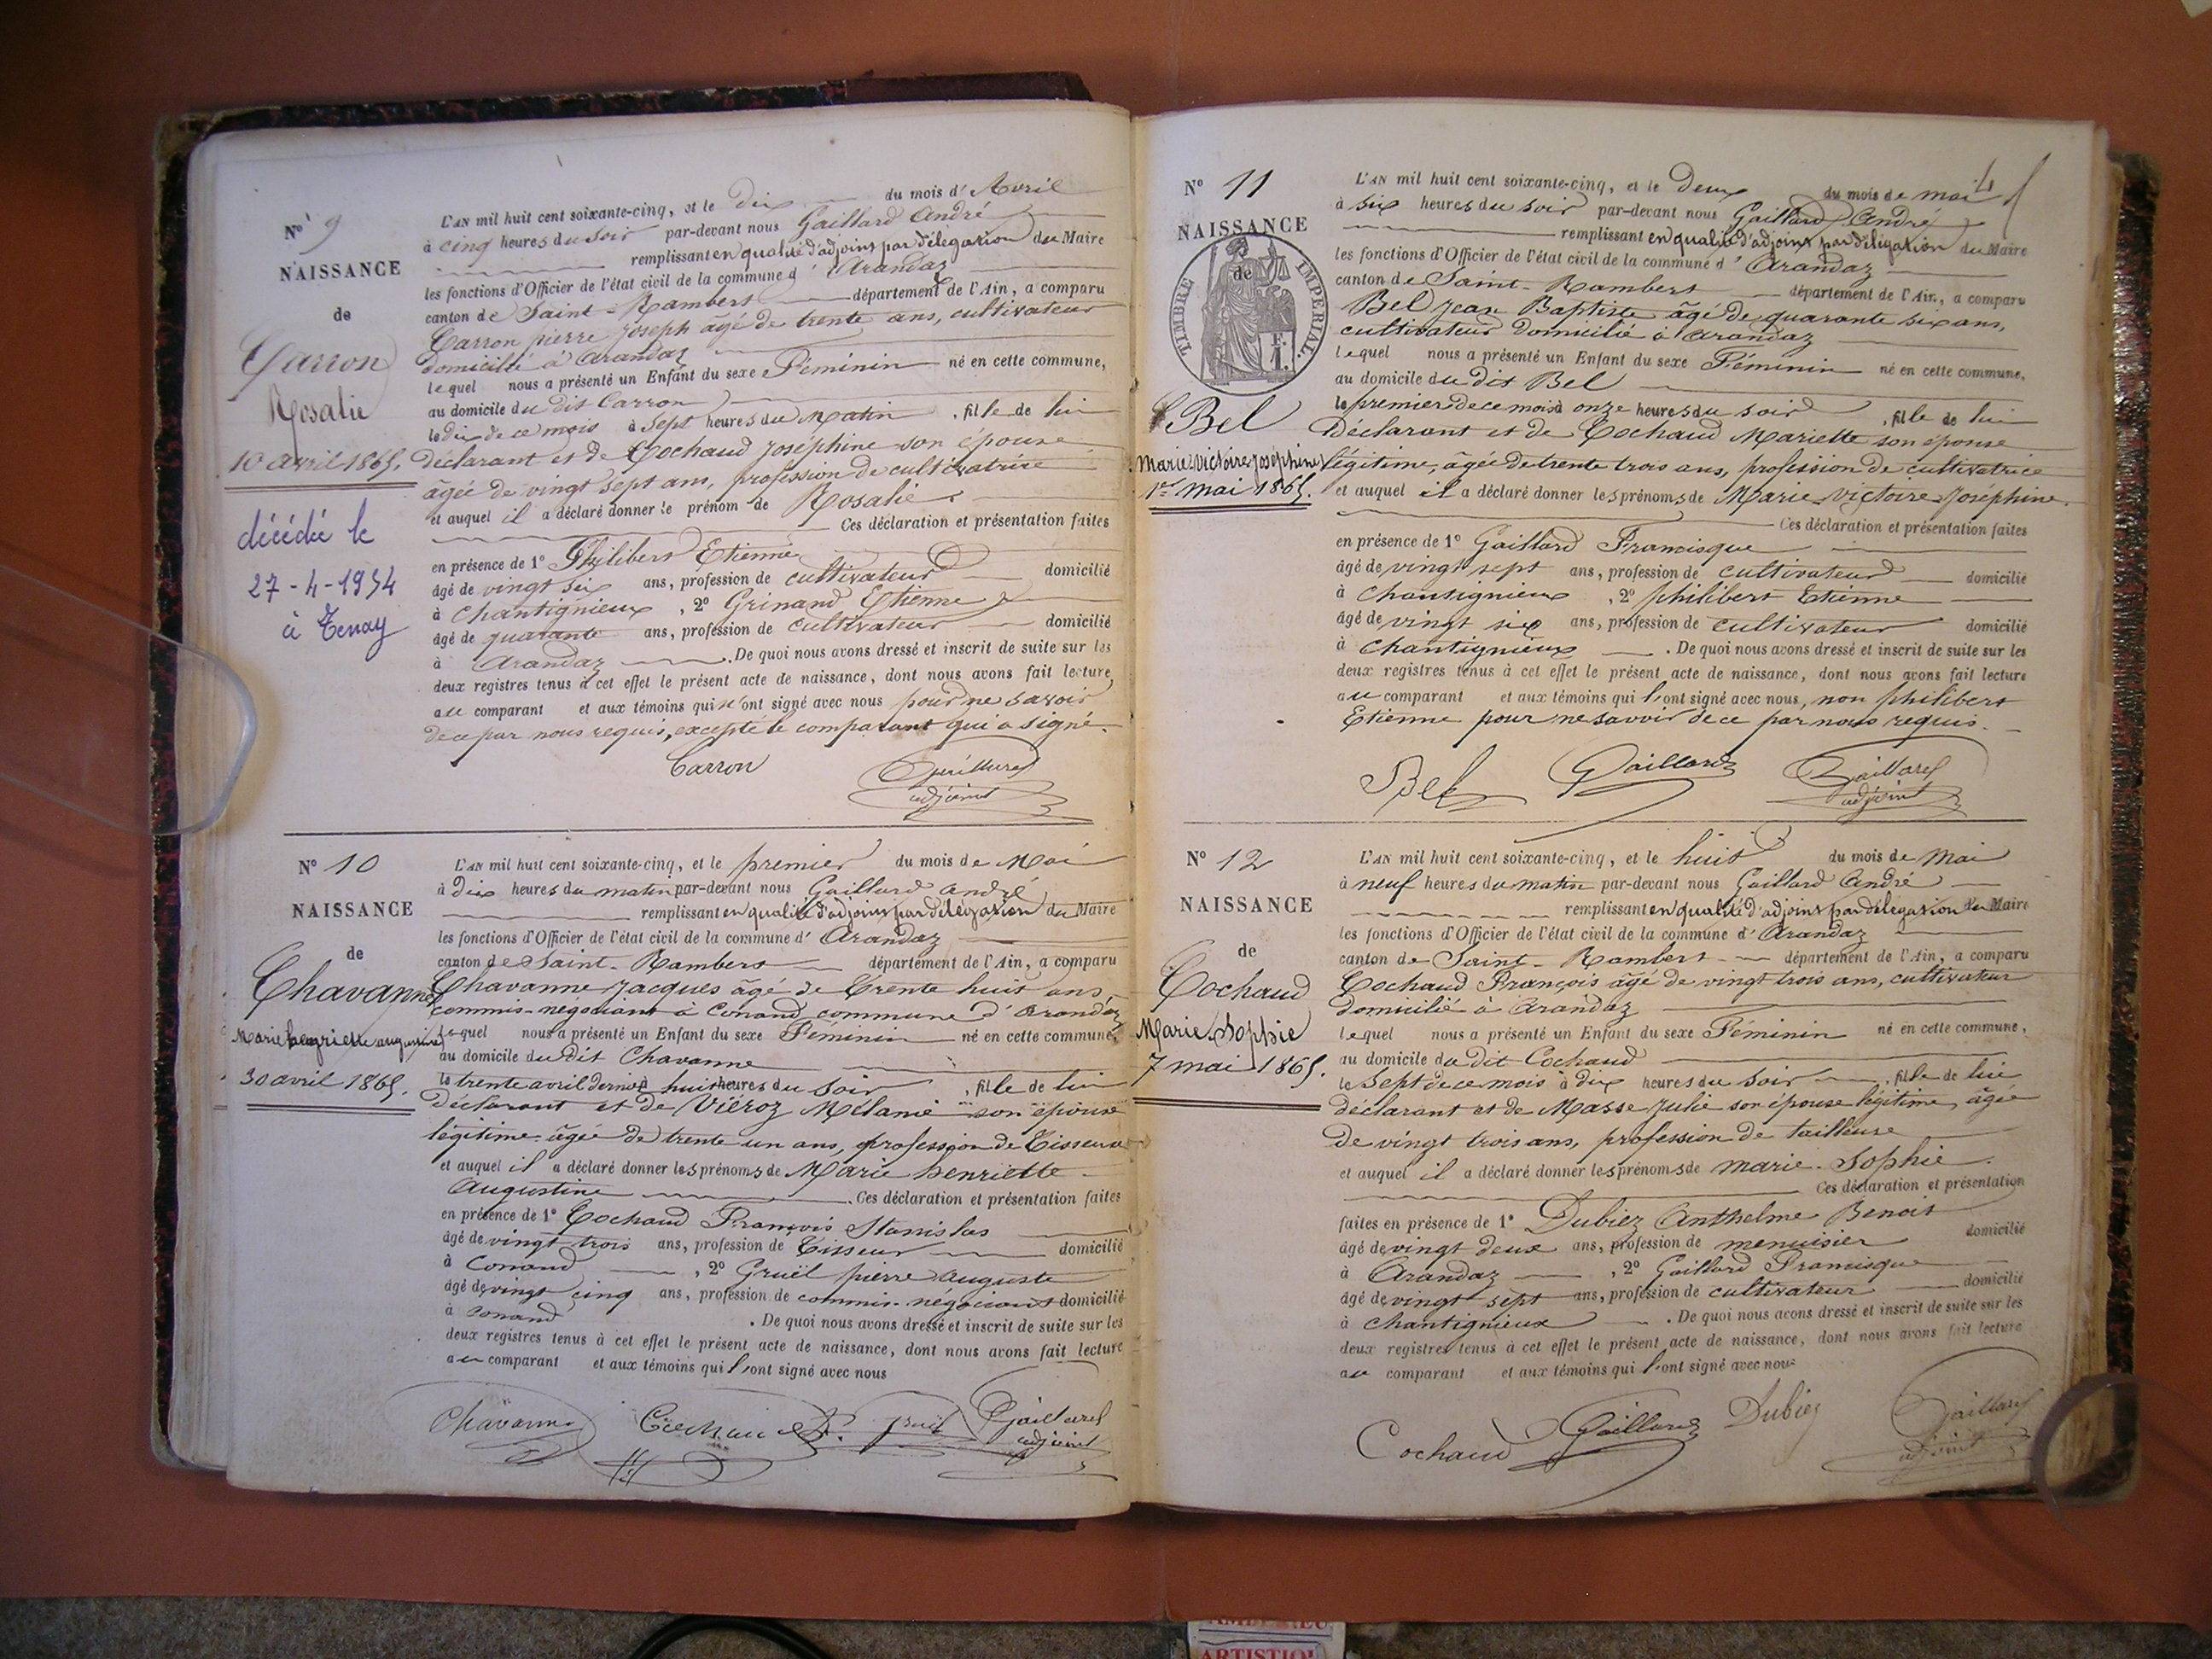 N° 9
NAISSANCE
de
Carron
Rosalie
10 avril 1865.
décédée le
27-4-1954
à Tenay
L'AN mil huit cent soixante-cinq, et le dix du mois d'Avril
à cinq heures du soir par-devant nous Gaillard André
remplissant en qualité d'adjoint par délégation du Maire
les fonctions d'Officier de l'état civil de la commune d'Arandaz
canton de Saint-Rambert département de l'Ain, a comparu
Carron pierre Joseph âgé de trente ans, cultivateur
domicilié à Arandaz
lequel nous a présenté un Enfant du sexe Féminin né en cette commune,
au domicile du dit Carron
le dix de ce mois à sept heures du matin, fille de lui
déclarant et de Cochaud Joséphine son épouse
âgée de vingt sept ans, profession de cultivatrice
et auquel il a déclaré donner le prénom de Rosalie
Ces déclaration et présentation faites
en présence de 1° Philibert Etienne
âgé de vingt six ans, profession de cultivateur domicilié
à Chantignieux, 2° Grinand Etienne
âgé de quarante ans, profession de cultivateur domicilié
à Arandaz. De quoi nous avons dressé et inscrit de suite sur les
deux registres tenus à cet effet le présent acte de naissance, dont nous avons fait lecture
au comparant et aux témoins qui n'ont signé avec nous pour ne savoir
de ce par nous requis, excepté le comparant qui a signé.
Carron Gaillard
adjoint
N° 10
NAISSANCE
de
Chavanne
Marie henriette augustine
30 avril 1865.
L'AN mil huit cent soixante-cinq, et le premier du mois de Mai
à dix heures du matin par-devant nous Gaillard André
remplissant en qualité d'adjoint par délégation du Maire
les fonctions d'Officier de l'état civil de la commune d'Arandaz
canton de Saint-Rambert département de l'Ain, a comparu
Chavanne Jacques âgé de trente huit ans
commis-négociant à Conand commune d'Arandaz
lequel nous a présenté un Enfant du sexe Féminin né en cette commune,
au domicile du dit Chavanne
le trente avril dernier à huit heures du soir, fille de lui
déclarant et de Viéroz Mélanie son épouse
légitime âgée de trente un ans, profession de Tisseuse
et auquel il a déclaré donner les prénoms de Marie henriette
Augustine. Ces déclaration et présentation faites
en présence de 1° Cochaud François Stanislas
âgé de vingt trois ans, profession de Tisseur domicilié
à Conand, 2° Gruël pierre auguste
âgé de vingt cinq ans, profession de commis-négociant domicilié
à Conand. De quoi nous avons dressé et inscrit de suite sur les
deux registres tenus à cet effet le présent acte de naissance, dont nous avons fait lecture
au comparant et aux témoins qui l'ont signé avec nous
Chavanne Cochaud Gaillard
adjoint
N° 11
NAISSANCE
de
TIMBRE IMPERIAL.
F.
1.
Bel
Marie Victoire Joséphine
1er mai 1865.
L'AN mil huit cent soixante-cinq, et le Deux du mois de mai
à six heures du soir par-devant nous Gaillard André
remplissant en qualité d'adjoint par délégation du Maire
les fonctions d'Officier de l'état civil de la commune d'Arandaz
canton de Saint-Rambert département de l'Ain, a comparu
Bel Jean Baptiste âgé de quarante six ans,
cultivateur domicilié à Arandaz
lequel nous a présenté un Enfant du sexe Féminin né en cette commune,
au domicile du dit Bel
le premier de ce mois à onze heures du soir, fille de lui
Déclarant et de Cochaud Mariette son épouse
légitime, âgée de trente trois ans, profession de cultivatrice
et auquel il a déclaré donner les prénoms de Marie-Victoire-Joséphine.
Ces déclaration et présentation faites
en présence de 1° Gaillard Francisque
âgé de vingt sept ans, profession de cultivateur domicilié
à Chantignieux, 2° philibert Etienne
âgé de vingt six ans, profession de cultivateur domicilié
à Chantignieux. De quoi nous avons dressé et inscrit de suite sur les
deux registres tenus à cet effet le présent acte de naissance, dont nous avons fait lecture
au comparant et aux témoins qui l'ont signé avec nous, non philibert
Etienne pour ne savoir de ce par nous requis.
Bel Gaillard Gaillard
adjoint
N° 12
NAISSANCE
de
Cochaud
Marie Sophie
7 mai 1865.
L'AN mil huit cent soixante-cinq, et le huit du mois de Mai
à neuf heures du matin par-devant nous Gaillard André
remplissant en qualité d'adjoint par délégation du Maire
les fonctions d'Officier de l'état civil de la commune d'Arandaz
canton de Saint-Rambert département de l'Ain, a comparu
Cochaud François âgé de vingt trois ans, cultivateur
domicilié à Arandaz
lequel nous a présenté un Enfant du sexe Féminin né en cette commune,
au domicile du dit Cochaud
le sept de ce mois à dix heures du soir, fille de lui
déclarant et de Masse Julie son épouse légitime, âgée
de vingt trois ans, profession de tailleuse
et auquel il a déclaré donner les prénoms de marie-Sophie.
Ces déclaration et présentation
faites en présence de 1° Dubiez Anthelme Benoit
âgé de vingt deux ans, profession de menuisier domicilié
à Arandaz, 2° Gaillard Francisque
âgé de vingt sept ans, profession de cultivateur domicilié
à Chantignieux. De quoi nous avons dressé et inscrit de suite sur les
deux registres tenus à cet effet le présent acte de naissance, dont nous avons fait lecture
au comparant et aux témoins qui l'ont signé avec nous
Cochaud Gaillard Dubiez Gaillard
adjoint